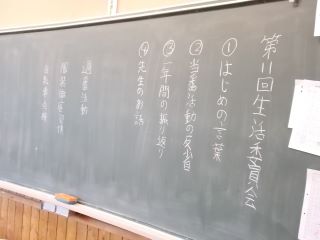 第11回生活委員会
①はじめの言葉
②当番活動の反省
③一年間の振り返り
④先生のお話
週番活動